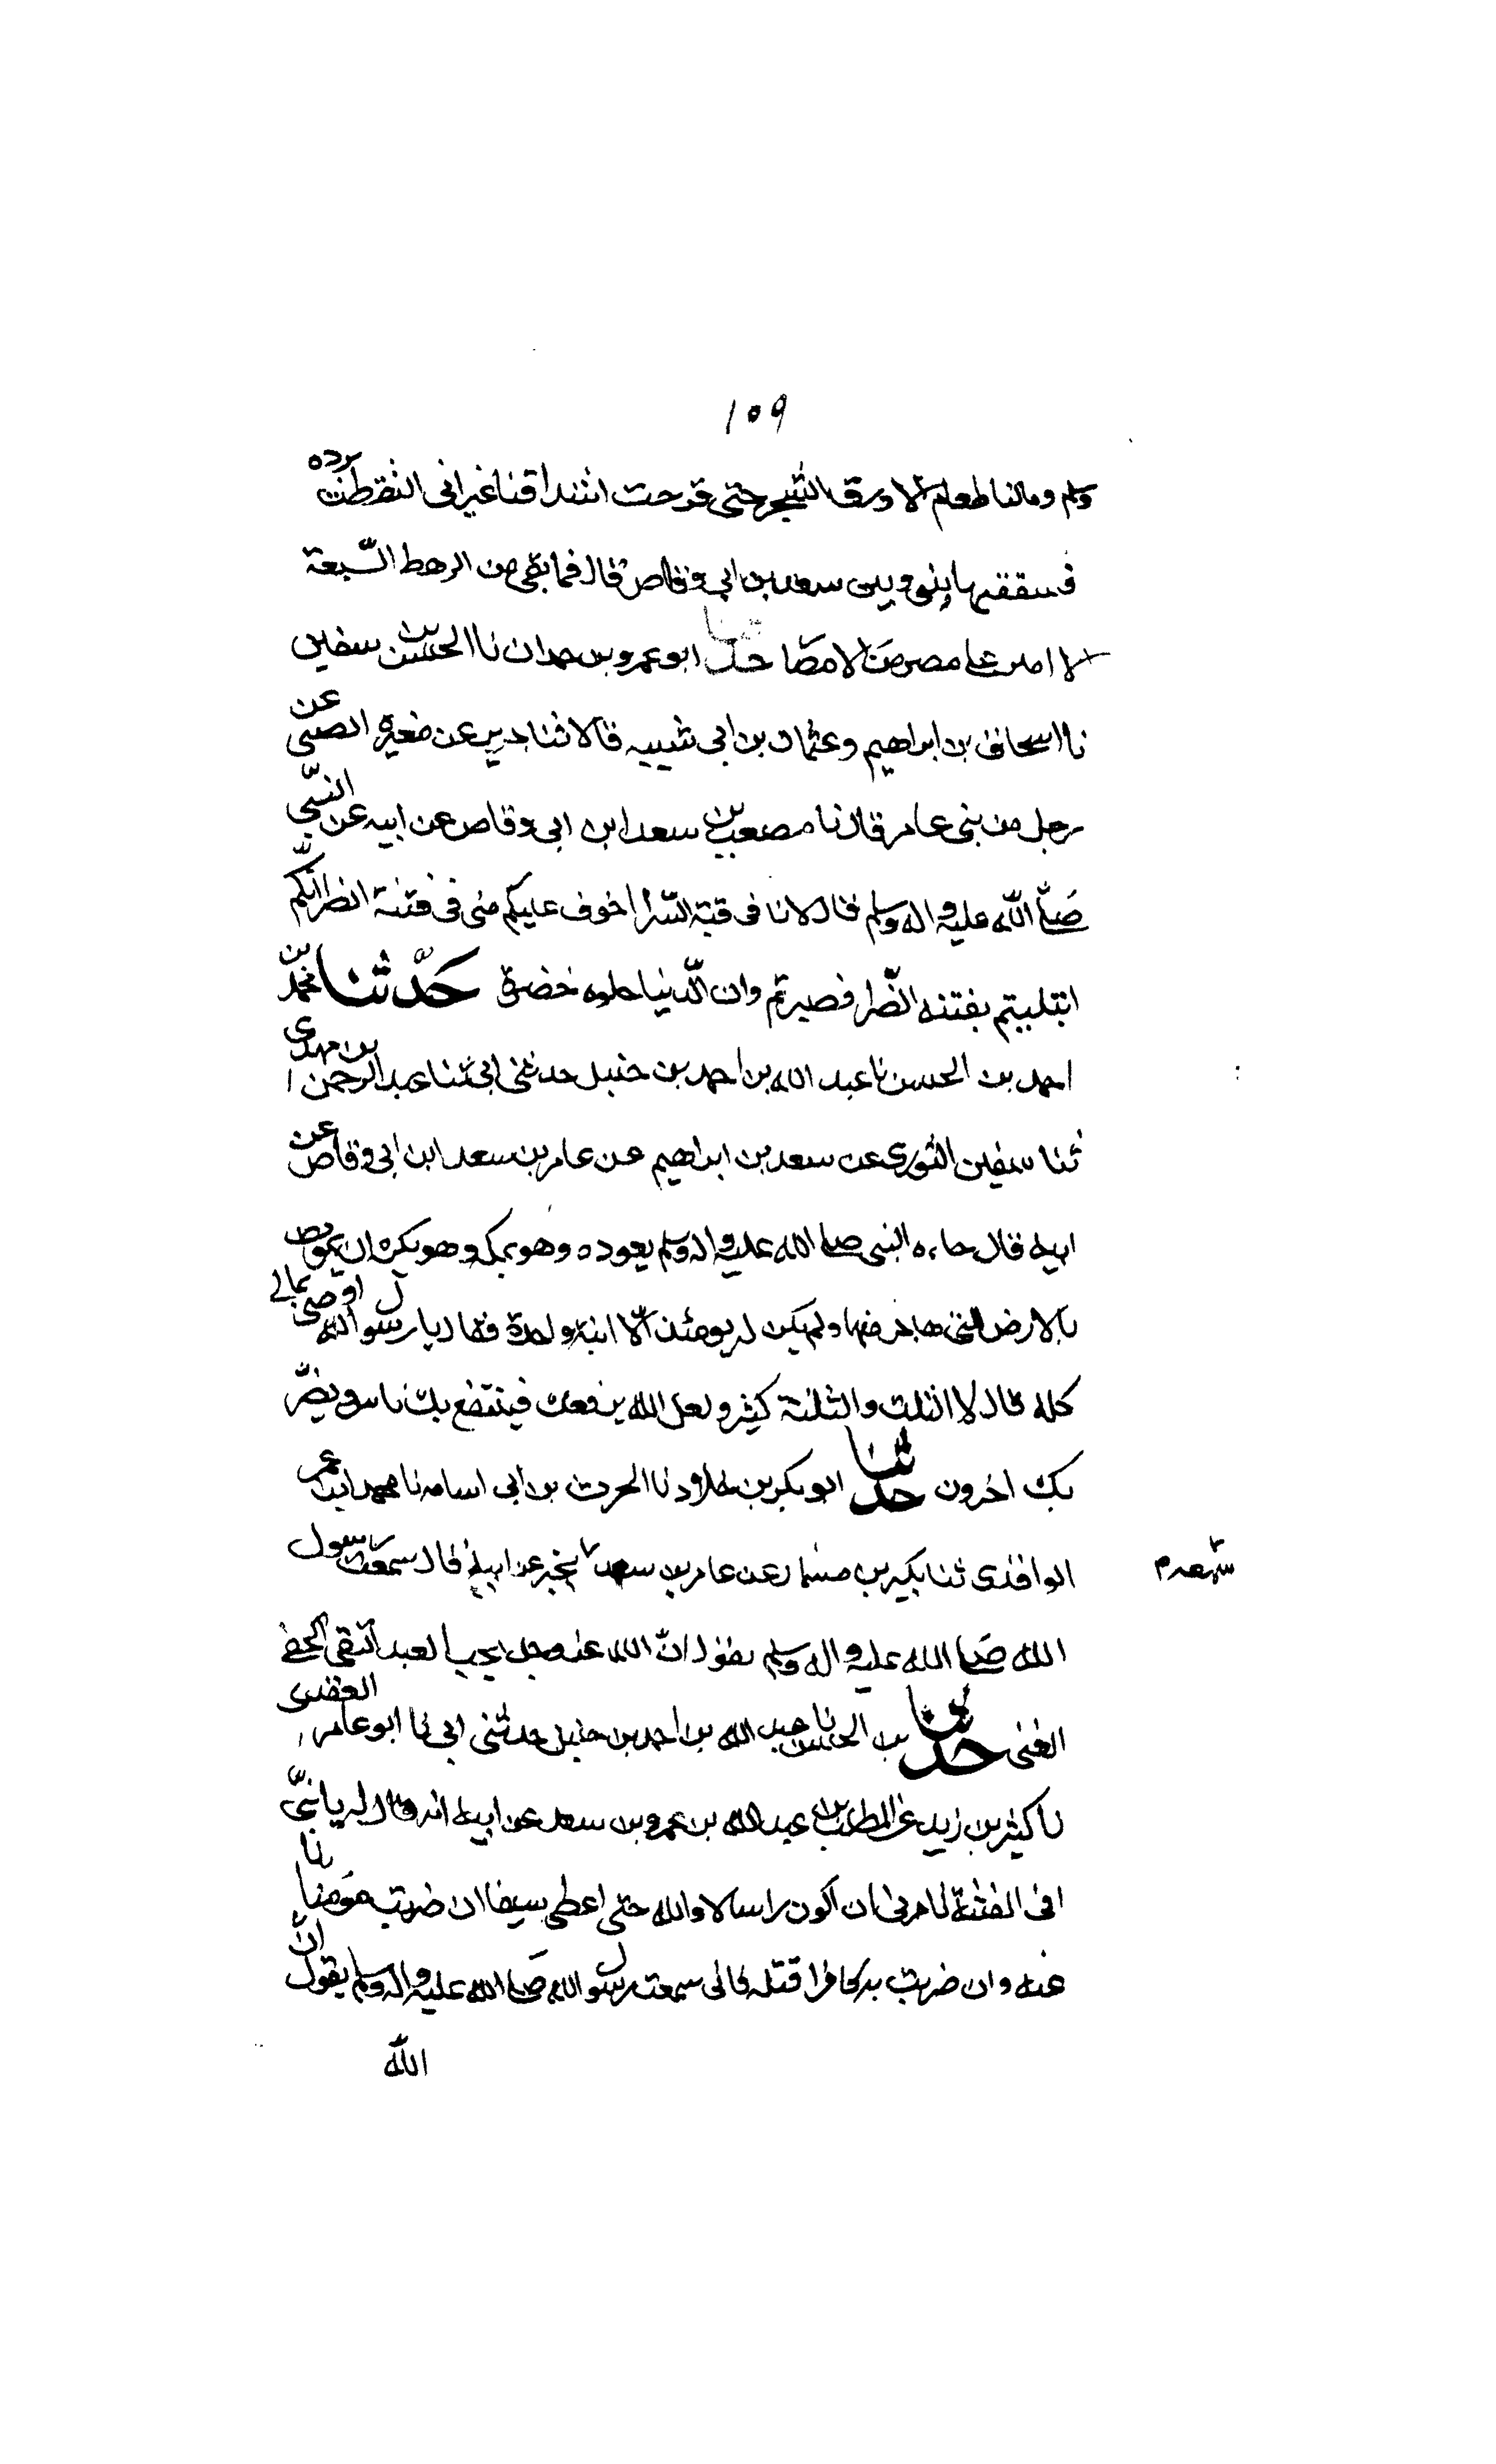 ١٥٩
وسلم ومالنا طعام الا ورق الشجر حتى قرحت اشداقنا غير انى التقطت برده
فشققتها بينى وبين سعد بن ابى وقاص قال فما بقى من الرهط السّبعة
الا امير على مصر من الامصا حدثنا ابو عمرو بن حمدان نا الحسن بن سفين
نا اسحاق بن ابراهيم وعثمان بن ابى شيبه قالا ثنا جرير عن مغيره الضبى عن
رجل من بنى عامر قال نا مصعب بن سعد ابن ابى وقاص عن ابيه عن النبىّ
صَلّى اللّه عليه واله وسلم قال لانا فى فتنة السّرا اخوف عليكم منى فى فتنة الضرا انّكم
ابتليتم بفتنه الضّرا فصبرتم وان الدّنيا حلوه خضرة حَدّثنا محمّد بن
احمد بن الحسن نا عبد الله بن احمد بن حنبل حدثنى ابى ثنا عبد الرحمن بن مهدى
ثنا سفين الثورى عن سعد بن ابراهيم عن عامر بن سعد ابن ابى وقاص عن
ابيه قال جاءه النبى صلى الله عليه واله وسلم يعوده وهو بمكه وهو يكره ان يموت
بالارض التى هاجر منها ولم يكن له يومئذ الّا ابنة واحدة فقال يا رسول الله اوصى بمالى
كله قال لا الثلث والثلث كثير ولعل الله ينفعك فينتفع بك ناس ويضرّ
بك اخرون حدثنا ابو بكر بن خلاد نا الحرث بن ابى اسامه نا محمد ابن عمر
الواقدى ثنا بكير بن مسمار عن عامر بن سعد يخبر عن ابيه قال سمعت رسول
الله صَلى الله عليه واله وسلم يقول انّ الله عز وجل يحب العبد التقى الخفى
الغنى حدثنا بن الحسن نا عبد الله بن احمد بن حنبل حدثنى ابى نا ابو عامر العقدى
نا كثير بن زيد عن المطلب بن عبد الله بن عمرو بن سعد عن ابيه انه قال له يا بنىّ
افى الفتنة تامرنى ان اكون راسا لا والله حتى اعطى سيفا ان ضربت مؤمنا نا
عنه وان ضربت به كافرا قتله فانى سمعت رسول الله صَلى الله عليه واله وسلم يقول انّ
اللّه